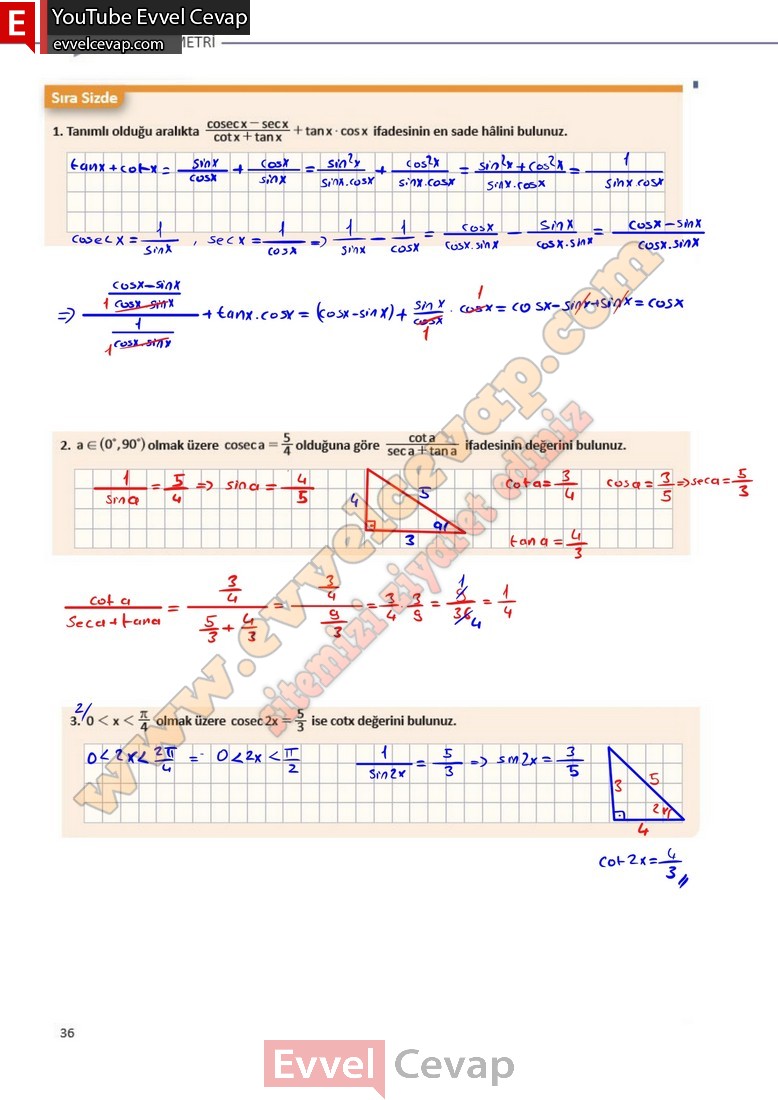 E YouTube Evvel Cevap
evvelcevap.com METRİ
Sıra Sizde
1. Tanımlı olduğu aralıkta (cosec x − sec x)/(cot x + tan x) + tan x · cos x ifadesinin en sade hâlini bulunuz.
tanx + cotx = sinx/cosx + cosx/sinx = sin²x/sinx.cosx + cos²x/sinx.cosx = (sin²x + cos²x)/sinx.cosx = 1/sinx.cosx
cosecx = 1/sinx , secx = 1/cosx => 1/sinx − 1/cosx = cosx/cosx.sinx − sinx/cosx.sinx = (cosx − sinx)/cosx.sinx
=> ((cosx−sinx)/1 cosx.sinx)/(1/1 cosx.sinx) + tanx.cosx = (cosx−sinx) + sinx/cosx 1 · cosx 1 = cosx − sinx + sinx = cosx
2. a ∈ (0°, 90°) olmak üzere cosec a = 5/4 olduğuna göre cot a/(sec a + tan a) ifadesinin değerini bulunuz.
1/sina = 5/4 => sina = 4/5
4 5 3 a
cota = 3/4 cosa = 3/5 => seca = 5/3
tana = 4/3
cota/(seca + tana) = (3/4)/(5/3 + 4/3) = (3/4)/(9/3) = 3/4 · 3/9 = 9/36 1 4 = 1/4
2/
3. 0 < x < π/4 olmak üzere cosec 2x = 5/3 ise cotx değerini bulunuz.
0 < 2x < 2π/4 = 0 < 2x < π/2 1/sin2x = 5/3 => sin2x = 3/5
3 5 2x 4
cot2x = 4/3 //
www.evvelcevap.com
sitemizi ziyaret ediniz
36
Evvel Cevap